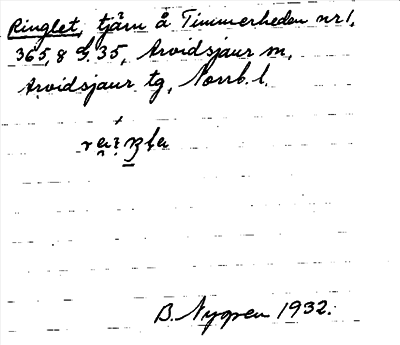 Ringlet, tjärn å Timmerheden nr 1,
365,8 G. 35, Arvidsjaur sn,
Arvidsjaur tg, Norrb. l.
B. Nygren 1932.